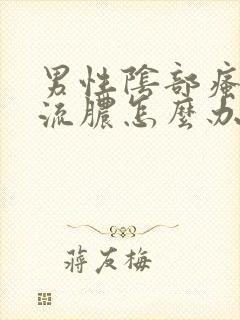 男性陰部瘙
流膿怎麼办
蔣友梅